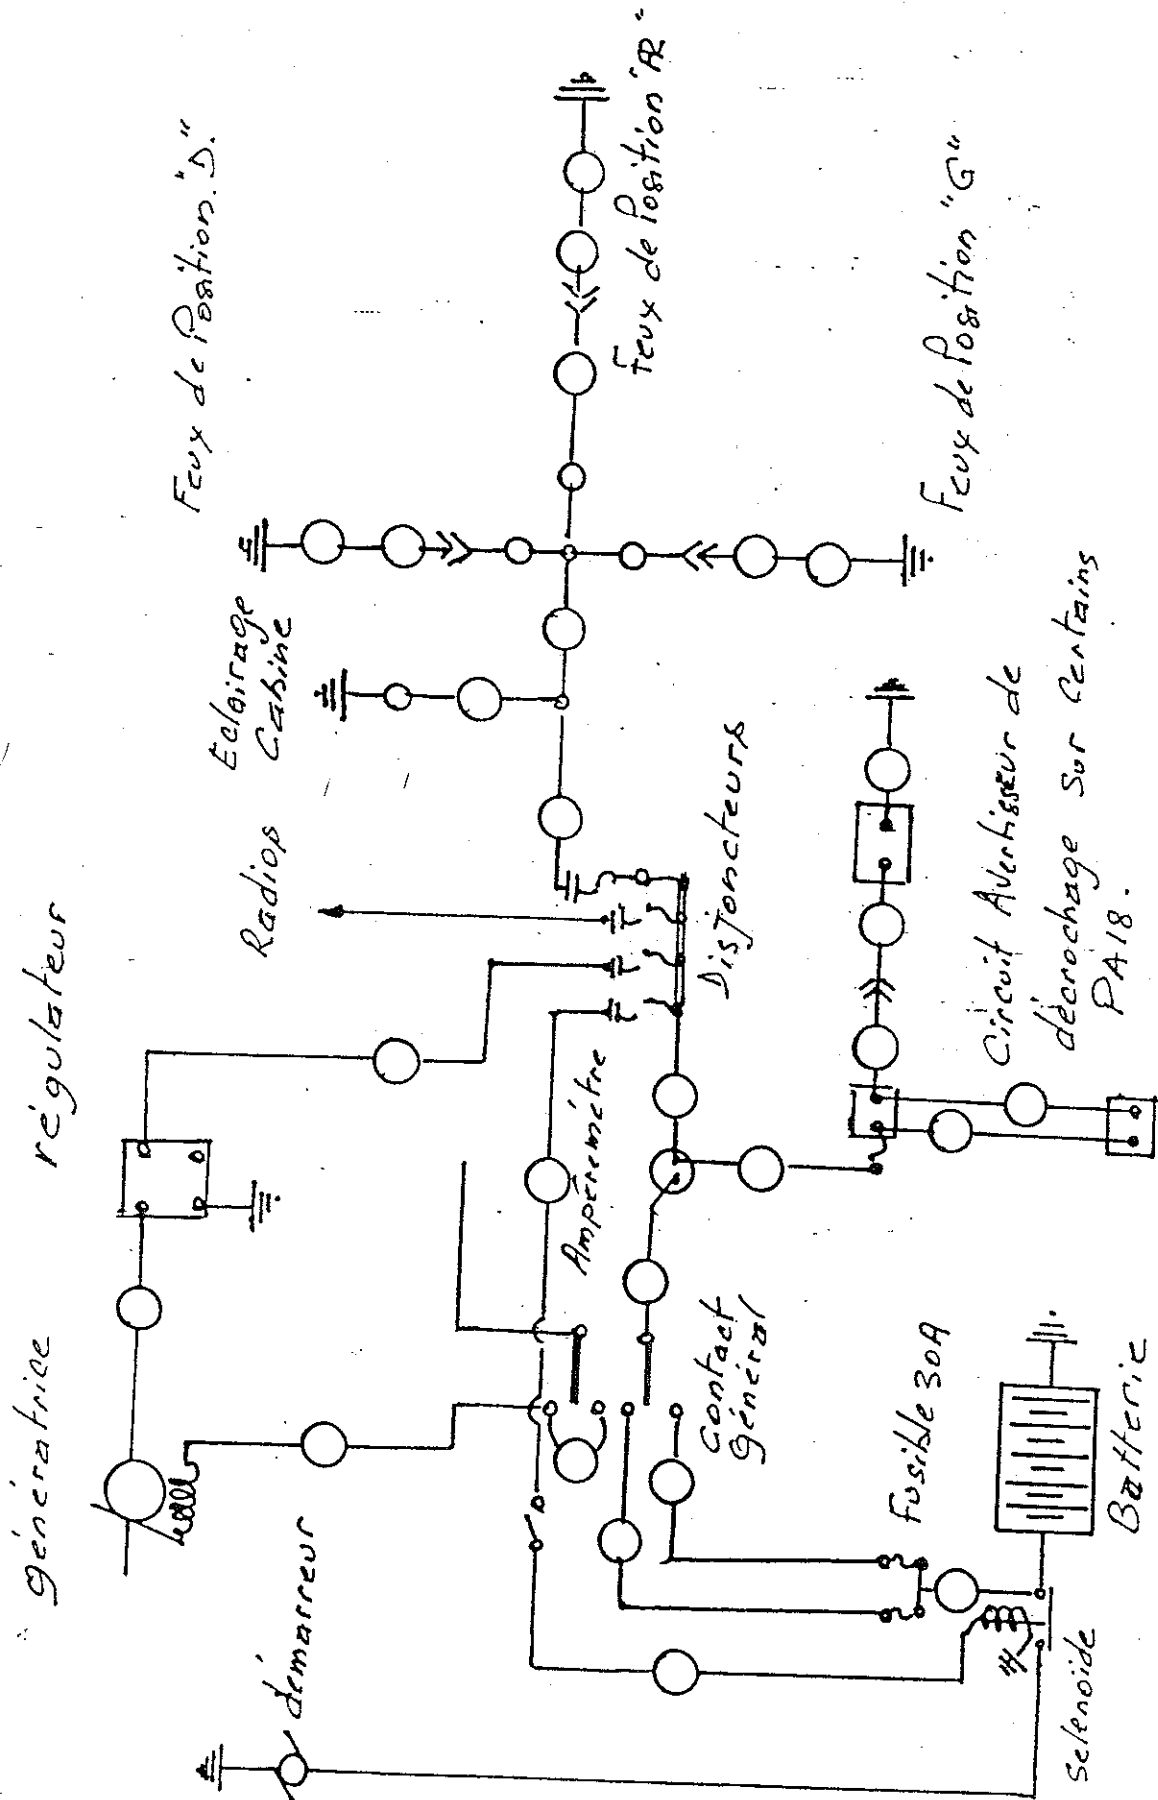 génératrice
régulateur
démarreur
Radios
Eclairage
Cabine
Feux de Position "D."
Feux de Position "AR"
Feux de Position "G"
Ampèremètre
Disjoncteurs
Contact
général
Fusible 30A
Selenoïde
Batterie
Circuit Avertisseur de
décrochage sur Certains
PA18.